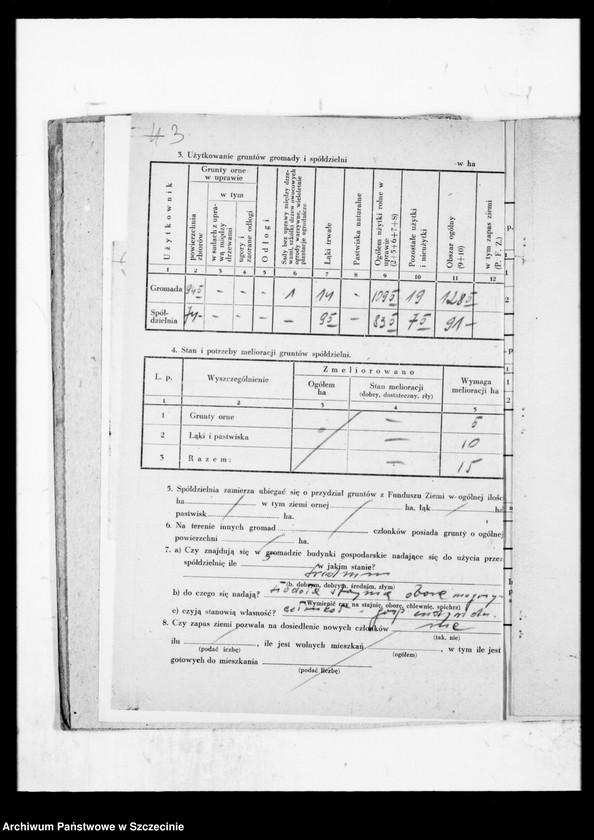 # 3
3. Użytkowanie gruntów gromady i spółdzielni
w ha
Użytkownik
Grunty orne w uprawie
powierzchnia zbiorów
w tym
w sadach z uprawą między drzewami
ugory i zaorane odłogi
Odłogi
Sady bez uprawy między drzewami, szkółki drzew owocowych ogrody warzywne, wieloletnie plantacje ogrodnicze
Łąki trwałe
Pastwiska naturalne
Ogółem użytki rolne w uprawie (2+5+6+7+8)
Pozostałe użytki i nieużytki
Obszar ogólny (9+10)
w tym zapas ziemi (P. F. Z.)
1 2 3 4 5 6 7 8 9 10 11 12
Gromada 945 - - - 1 14 - 1095 19 1285
Spółdzielnia 74- - - - - 95 - 835 75 91-
4. Stan i potrzeby melioracji gruntów spółdzielni.
L. p.
Wyszczególnienie
Zmeliorowano
Ogółem ha
Stan melioracji
(dobry, dostateczny, zły)
Wymaga melioracji ha
1 2 3 4 5
1 Grunty orne — 5
2 Łąki i pastwiska — 10
3 Razem: — 15
5. Spółdzielnia zamierza ubiegać się o przydział gruntów z Funduszu Ziemi w ogólnej ilości
ha w tym ziemi ornej ha, łąk ha
pastwisk ha.
6. Na terenie innych gromad członków posiada grunty o ogólnej
powierzchni ha.
7. a) Czy znajdują się w gromadzie budynki gospodarskie nadające się do użycia przez
spółdzielnię ile 5 w jakim stanie?
średnim
(b. dobrym, dobrym, średnim, złym)
b) do czego się nadają? stajnia oborę
(Wymienić czy na stajnie, oborę, chlewnie, spichrz)
c) czyją stanowią własność?
8. Czy zapas ziemi pozwala na dosiedlenie nowych członków nie
(tak, nie)
ilu , ile jest wolnych mieszkań , w tym ile jest
(podać liczbę)
(ogółem)
gotowych do mieszkania
(podać liczbę)
Archiwum Państwowe w Szczecinie